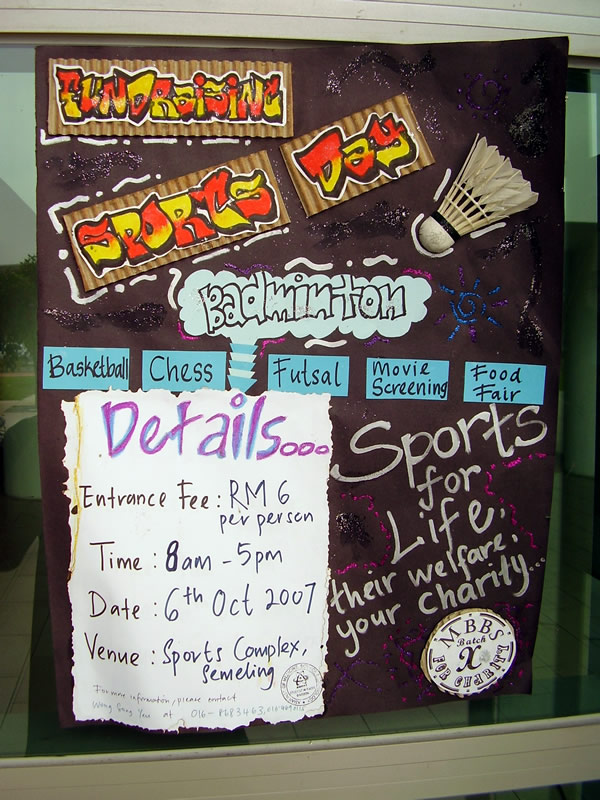 FUNDRaiSiNG
SPORTS Day
Badminton
Basketball
Chess
Futsal
Movie
Screening
Food
Fair
Details...
Entrance Fee : RM 6
per person
Time : 8am - 5pm
Date : 6th Oct 2007
Venue : Sports Complex,
Semeling
For more information, please contact
at 016-
Sports
for
Life,
their welfare,
your charity...
MBBS
Batch
X
FOR CHARITY